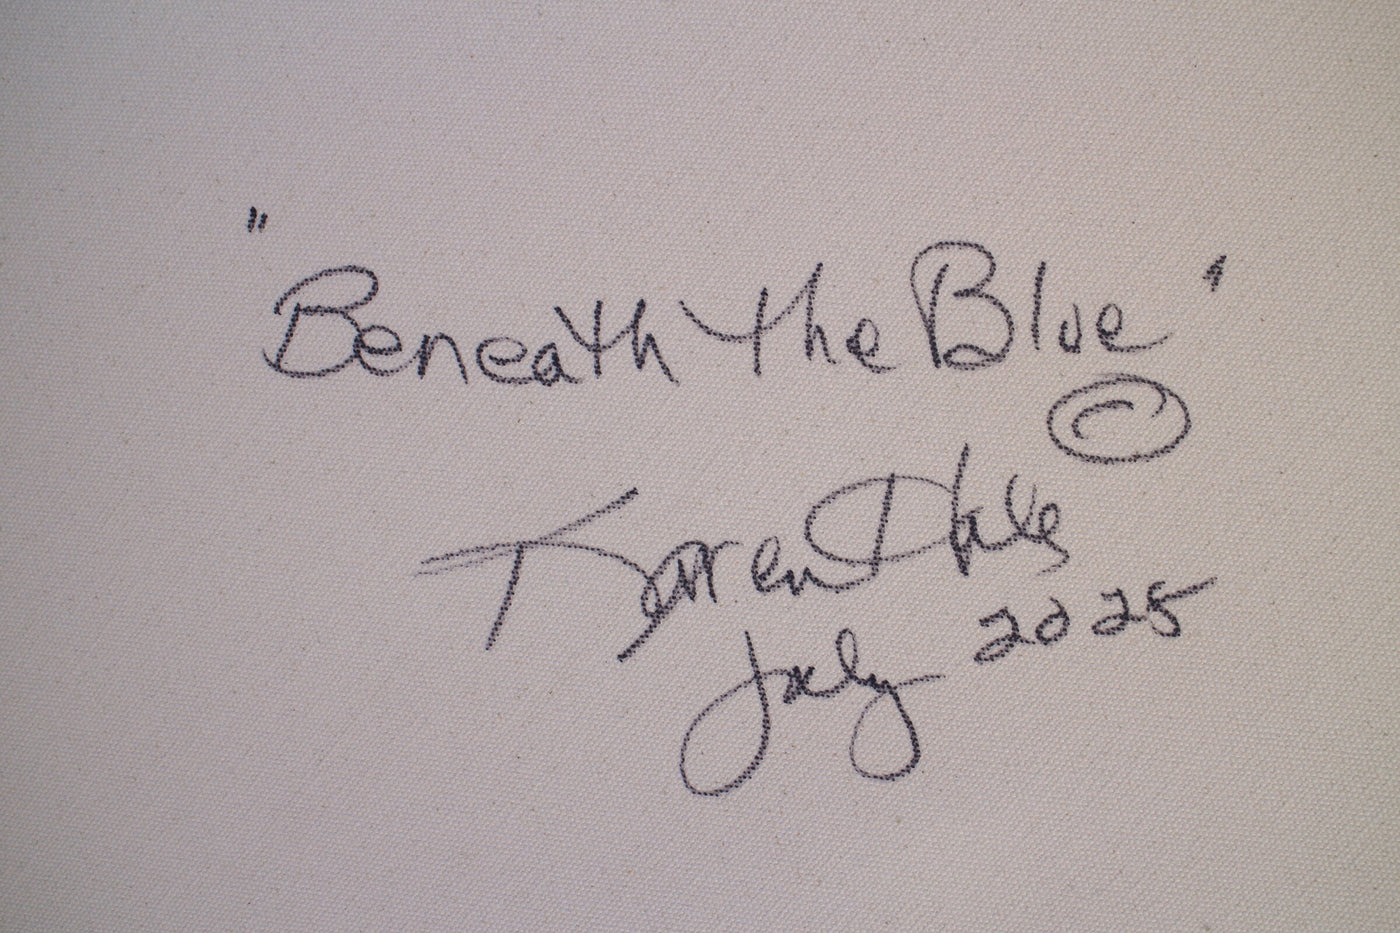 "Beneath the Blue"
©
Karen Hale
July 2025